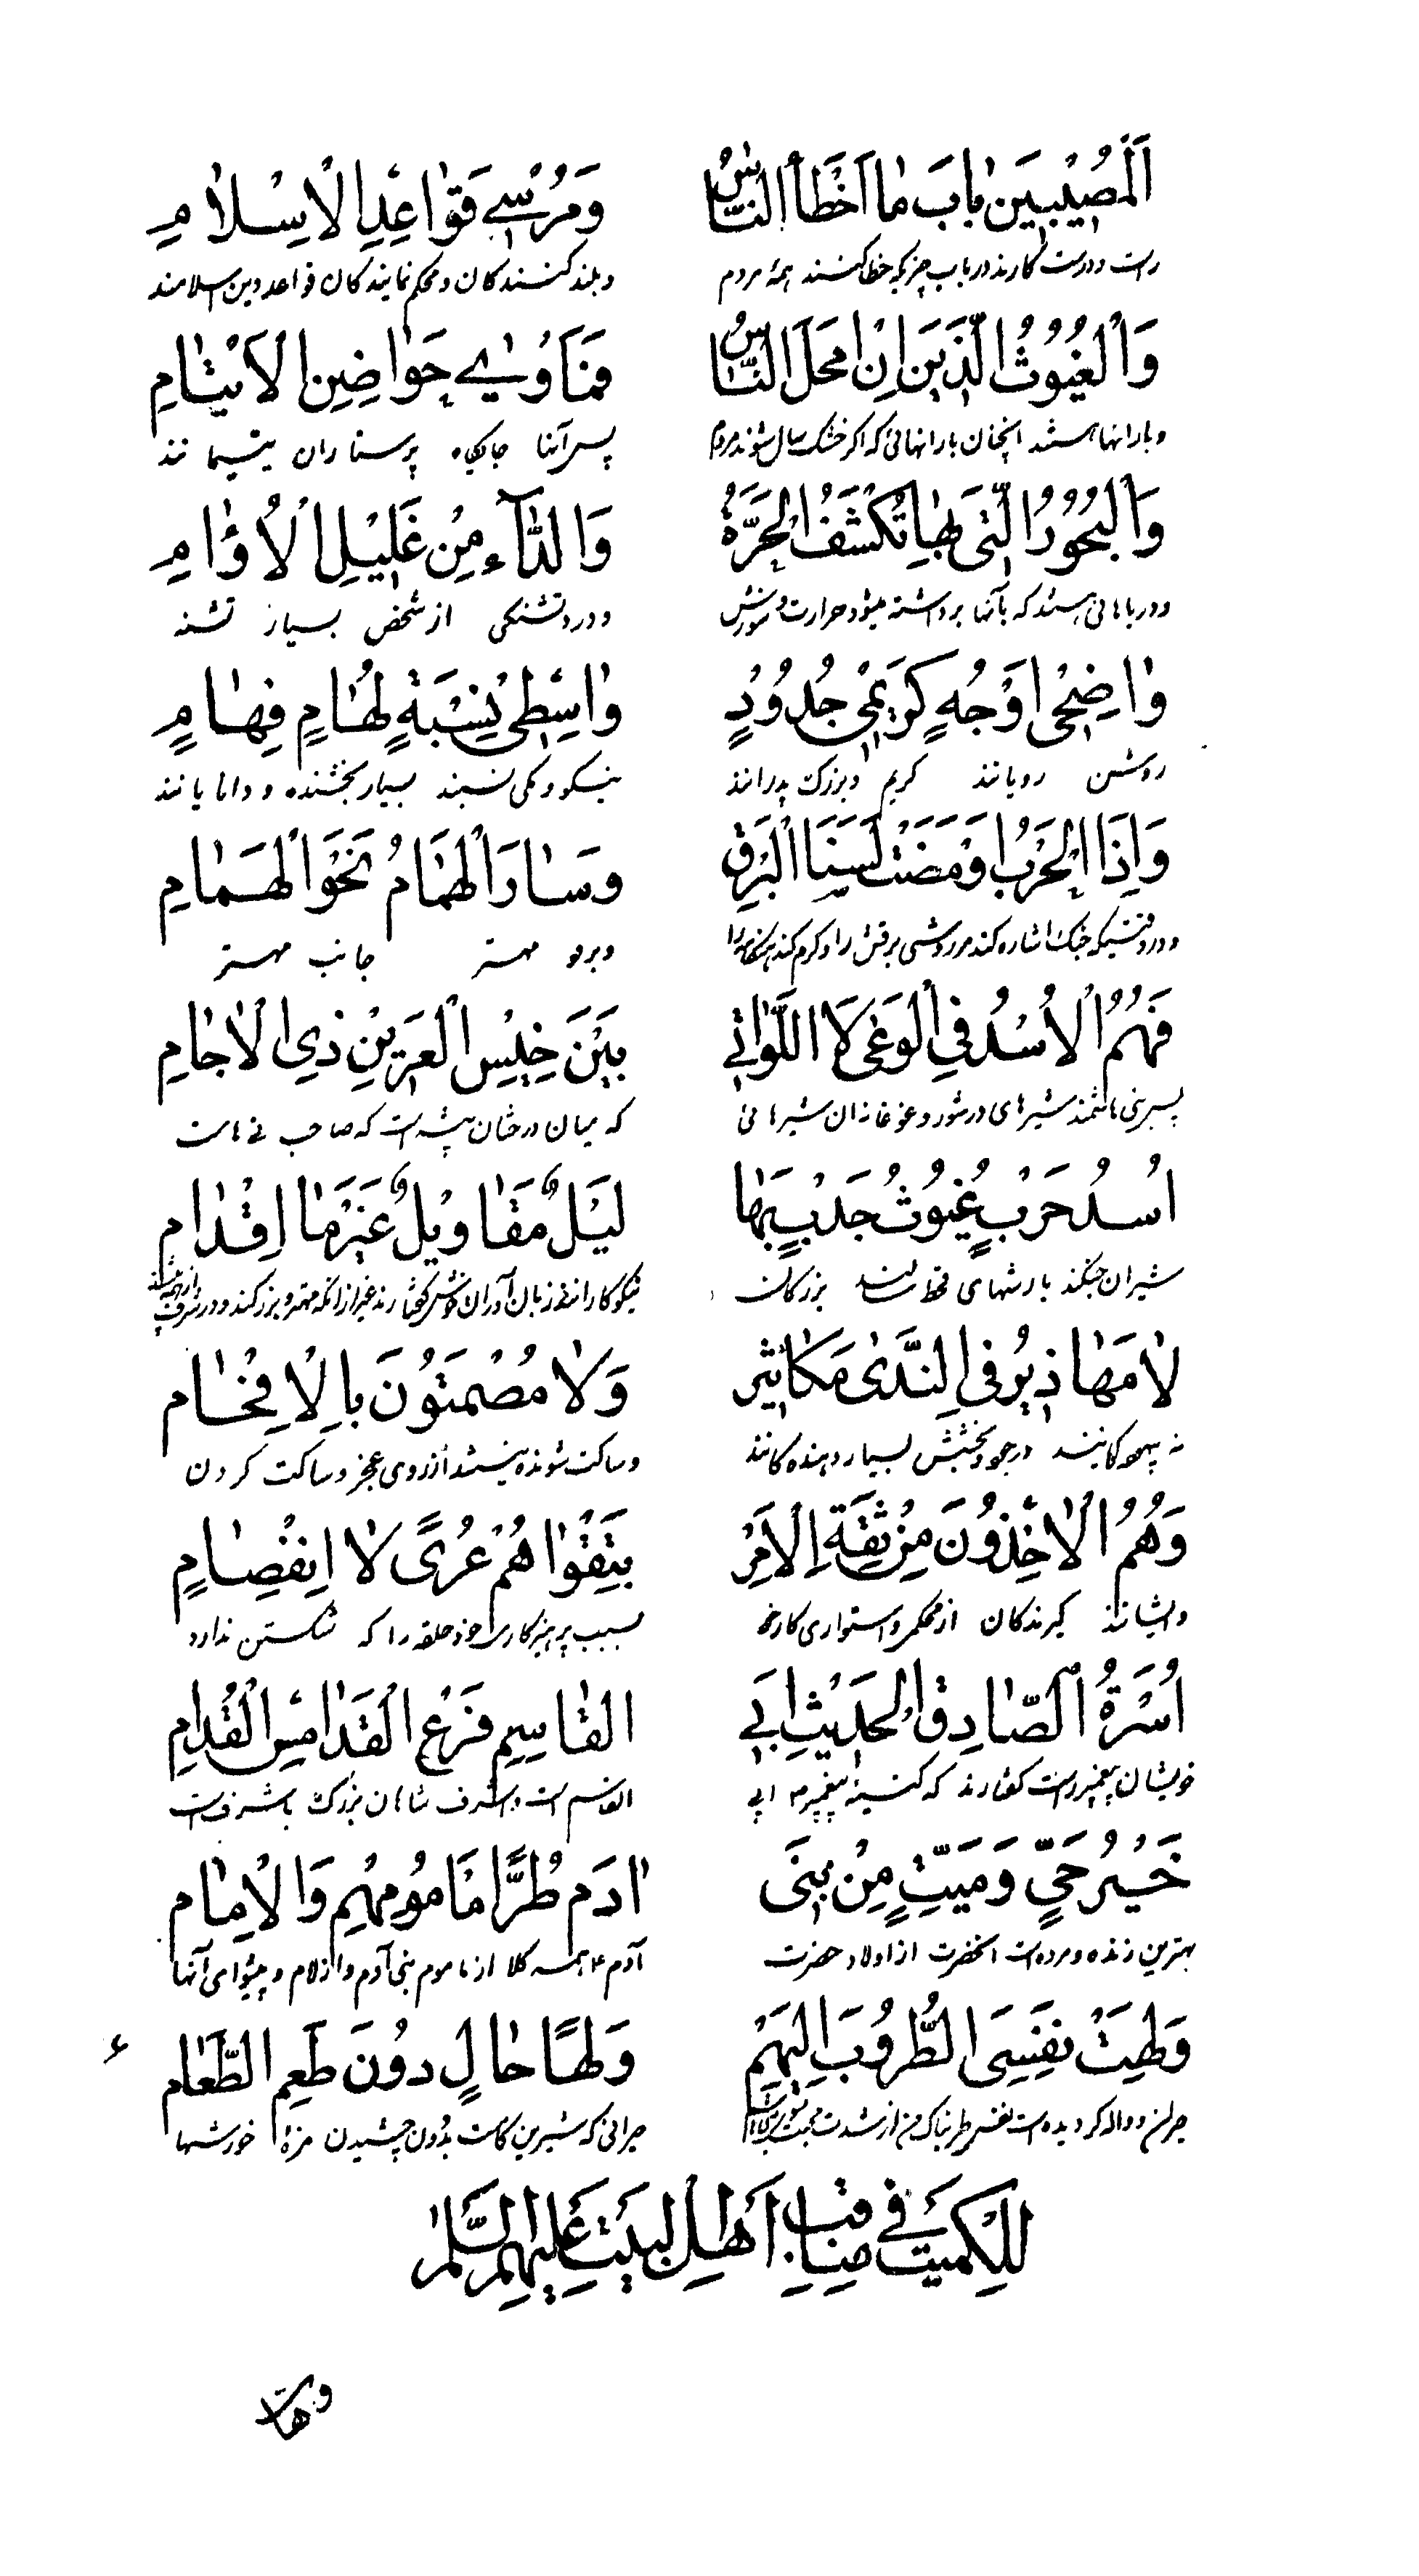 اَلْمُصِیْبِیْنَ بابَ مٰا اَخْطَأَ النّٰاسُ وَمُرْسِی قَوٰاعِدِ الْاِسْلٰامِ
راست و درست کارند در باب چیزیکه خطا کنند همهٔ مردم و بلند کنندکان و محکم نمایندکان قواعد دین اسلامند
وَالْغُیُوْثُ الَّذیَنَ اِنْ اَمْحَلَ النّٰاسُ فَمَأوٰی حَوٰاضِنِ الْاَیْتٰامِ
و بارانها هستند آنچنان بارانهائی که اکر خشک سال شوند مردم پس آنها جایکاه پرستاران یتیمانند
وَالْبُحُوْرُ الَّتی بِهٰا تُکْشَفُ الْحِرَّةُ وَالدّٰآءِ مِنْ غَلِیْلِ الْاُوٰامِ
و دریاهائی هستند که بآنها برداشته میشود حرارت و سوزش و درد تشنکی از شخص بسیار تشنه
وٰاضِحْی اَوْجُهٍ کَریَمْی جُدُوْدٍ وٰاسِطِی نِسْبَةٍ لُهٰامٍ فِهٰامٍ
روشن رویانند کریم و بزرک پدرانند نیکو و نسبند بسیار بخشنده و دانایانند
وَاِذَا الْحَرْبُ اَوْمَضَتْ لِسَنَا الْبَرْقِ وَسٰارَ الْهُمٰامُ نَحْوَ الْهُمٰامِ
و در وقتیکه جنک اشاره کند مر روشنی برقش را و کرم کند هنکامه را و برود مهتر جانب مهتر
فَهُمُ الْاُسْدُ فِی الْوَغٰی لَا اللَّوٰاتی بَیْنَ خِیْسِ الْعَرِیْنِ ذِی الْاٰجٰامِ
پس بنی هاشمند شیرهای در شور و غوغا نه آن شیرهائی که میان درختان بیشه است که صاحب نی هاست
اُسْدُ حَرْبٍ غُیُوْثُ جَدْبٍ بَهٰا لَیْلُ مَقٰاوِیْلُ غَیْرُ مٰا اِفْدٰامِ
شیران جنکند بارشهای قحط سالند بزرکان نیکو کارانند زبان آوران خوش کفتارند
لٰا مَهٰاذیِرُ فی النَّدٰی مَکٰاثیِرُ وَلٰا مُصْمِتُوْنَ بِالْاِفْحٰامِ
نه بیهوده کانند در جود و بخشش بسیار دهنده کانند و ساکت شونده نیستند از روی عجز و ساکت کردن
وَهُمُ الْاٰخِذُوْنَ مِنْ ثِقَةِ الْاَمْرِ بِتَقْوٰاهُمْ عُرًی لٰا انْفِصٰامِ
و ایشانند کیرندکان از محکم و استواری کار بسبب پرهیزکاری خود حلقه را که شکستن ندارد
اُسْرَةُ الصّٰادِقِ الْحَدیْثِ اَبی الْقٰاسِمِ فَرْعِ الْقُدٰامِسِ الْقُدّٰامِ
خویشان پیغمبر راست کفتارند که کنیهٔ پیغمبر م ابی القاسم است و اشرف شاهان بزرک با شرافت
خَیْرُ حَیٍّ وَمَیِّتٍ مِنْ بَنِی اٰدَمَ طُرًّا مَأمُوْمِهِمْ وَالْاِمٰامِ
بهترین زنده و مرده است آنحضرت از اولاد حضرت آدم ع همه کلا از ماموم بنی آدم و از امام و پیشوای آنها
وَلِهَتْ نَفْسِیَ الطَّرُوْبُ اِلَیْهِمْ وَلَهًا حٰالٍ دُوْنَ طَعْمِ الطَّعٰامِ
حیران و واله کردیده است نفس طربناک من از شدت محبت حیرانی که شیرین کامست بدون چشیدن مزهٔ خورشها
لِلْکُمَیْتِ فی مَنٰاقِبِ اَهْلِ الْبَیْتِ عَلَیْهِمُ السَّلٰمُ